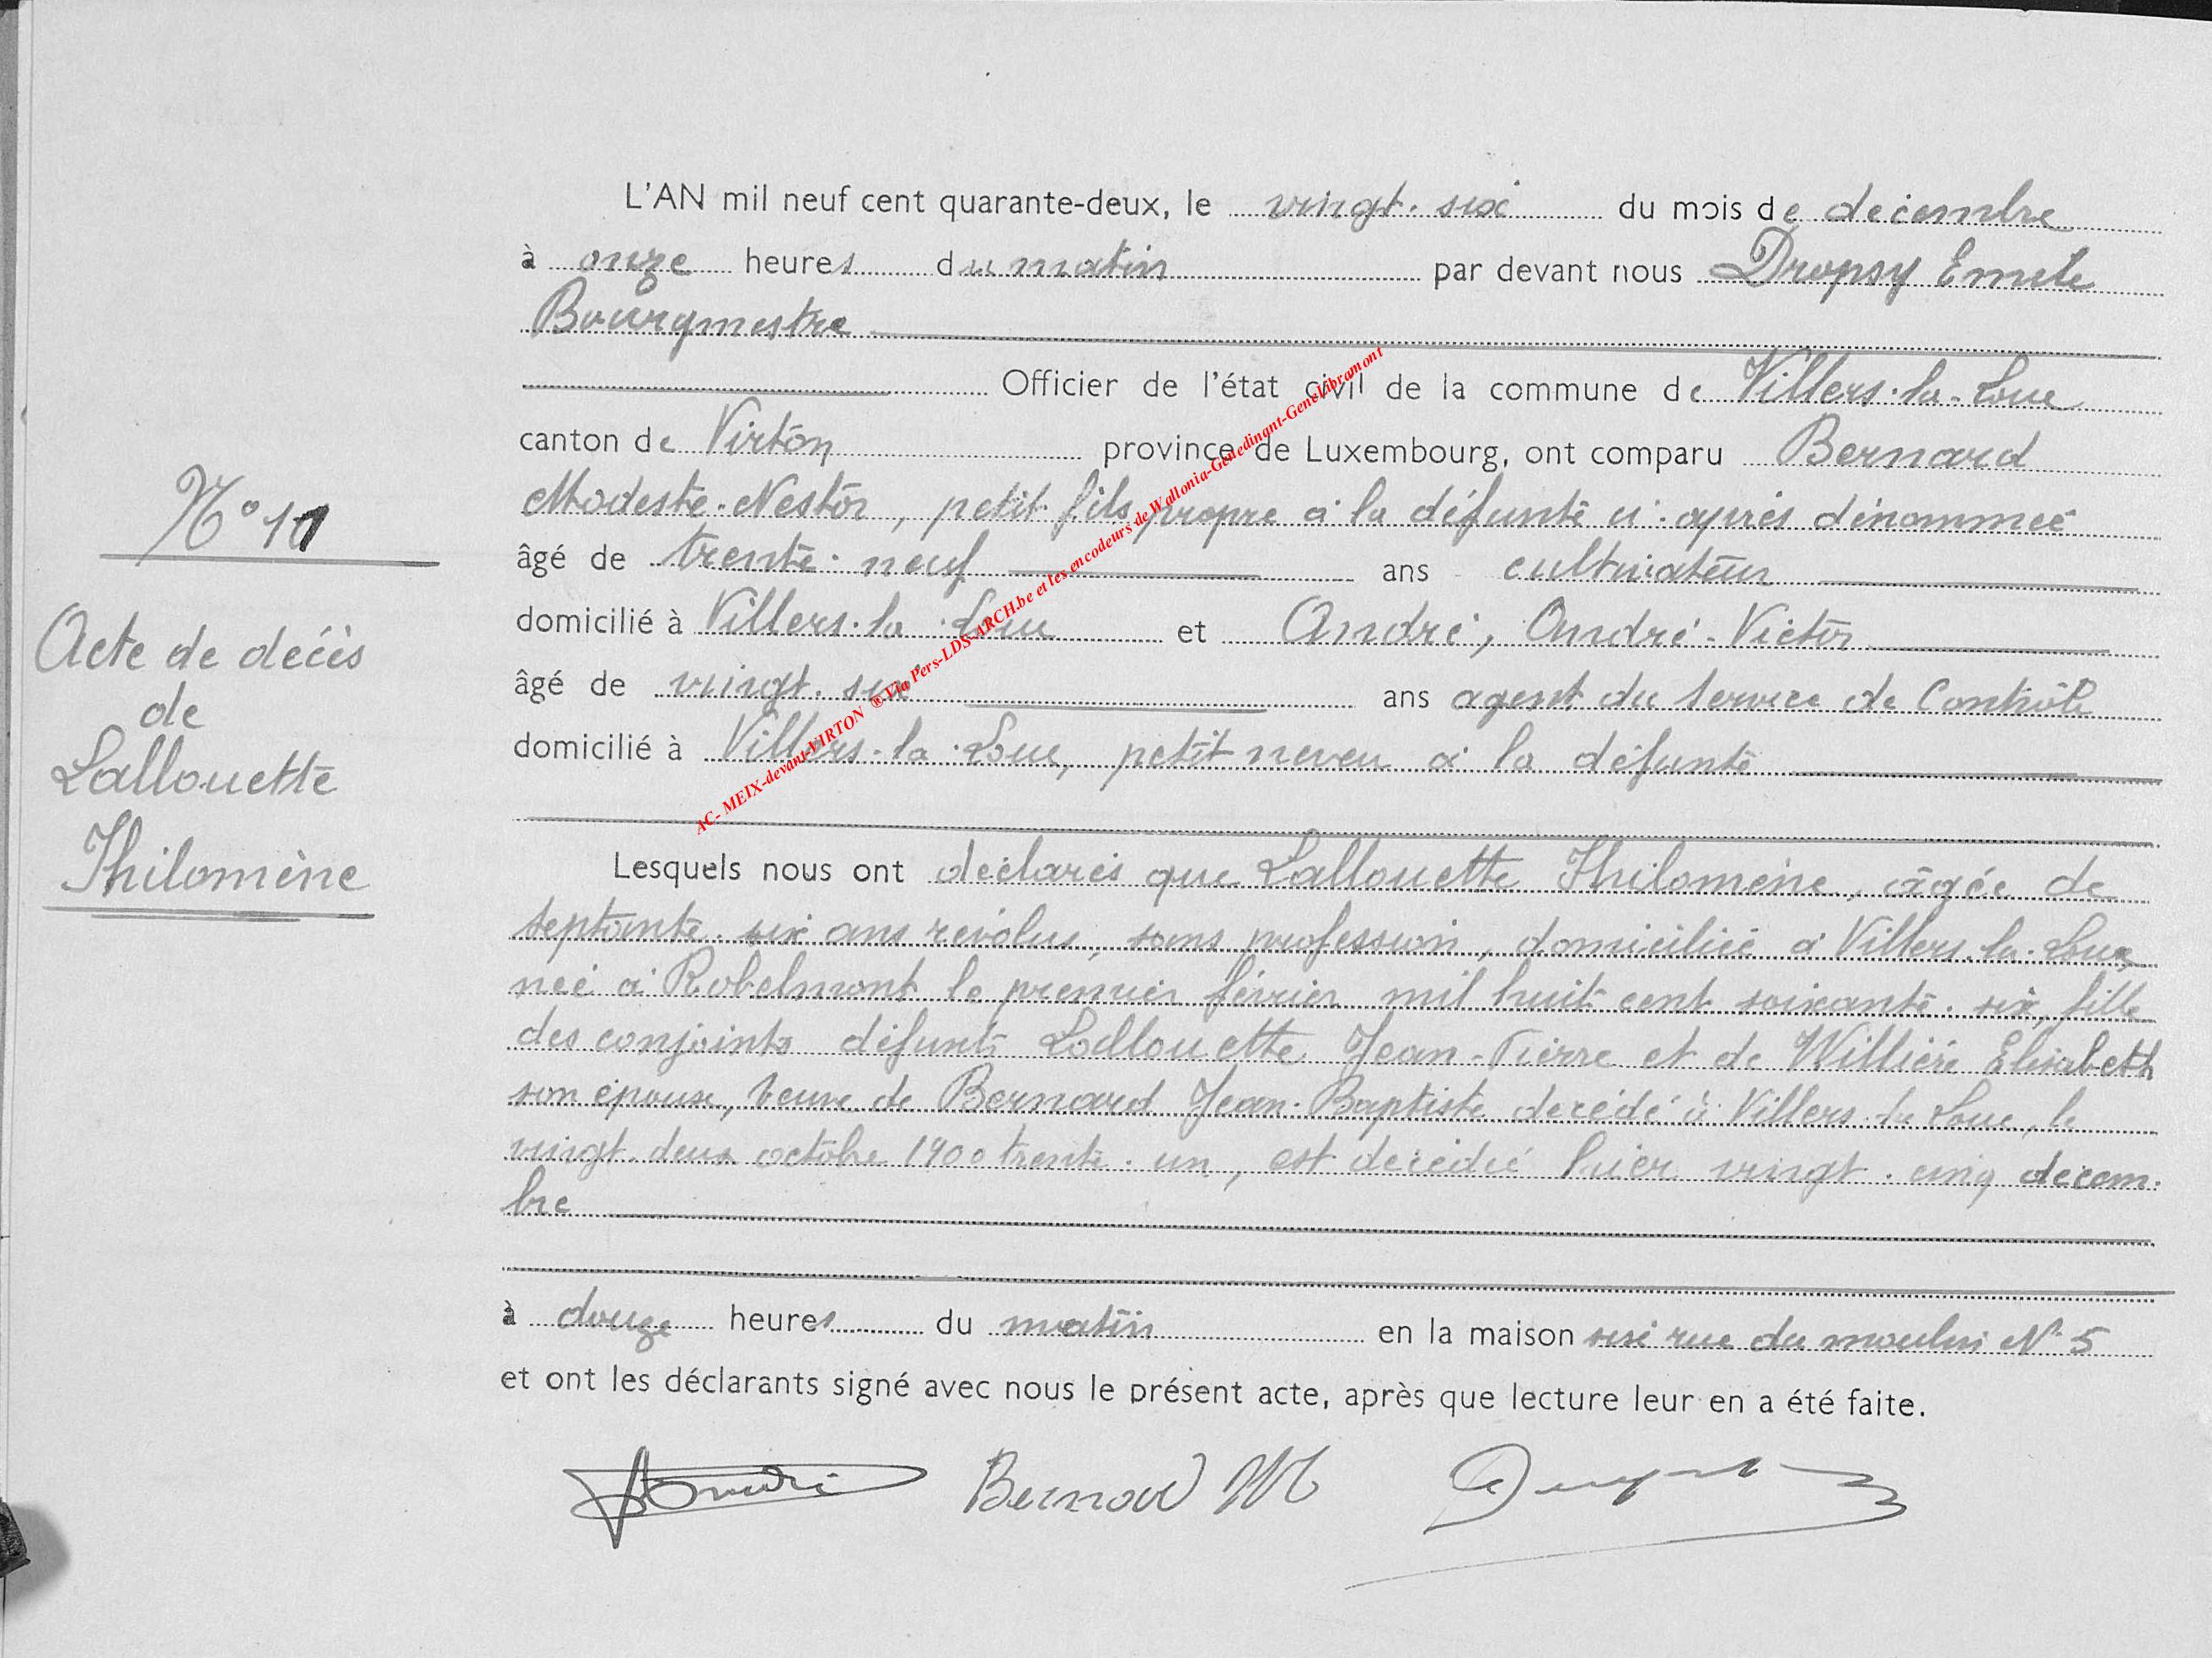 L'AN mil neuf cent quarante-deux, le vingt-six du mois de décembre
à onze heures du matin par devant nous Dropsy Emile
Bourgmestre
Officier de l'état civil de la commune de Villers-la-Loue
canton de Virton province de Luxembourg, ont comparu Bernard
Modeste-Nestor, petit-fils propre à la défunte ci-après dénommée
âgé de trente-neuf ans cultivateur
domicilié à Villers-la-Loue et André, André-Victor
âgé de vingt-six ans agent du service de Contrôle
domicilié à Villers-la-Loue, petit neveu à la défunte
Lesquels nous ont déclarés que Lallouette Philomène, âgée de
septante-six ans révolus, sans profession, domiciliée à Villers-la-Loue
née à Robelmont le premier février mil huit cent soixante-six, fille
des conjoints défunts Lallouette Jean-Pierre et de Willière Elisabeth
son épouse, veuve de Bernard Jean-Baptiste décédé à Villers-la-Loue, le
vingt-deux octobre 1900 trente-un, est décédée hier vingt-cinq décem-
bre
à douze heures du matin en la maison sise rue du moulin N° 5
et ont les déclarants signé avec nous le présent acte, après que lecture leur en a été faite.
André Bernard M Dropsy
N° 11
Acte de décès
de
Lallouette
Philomène
AC- MEIX-devant-VIRTON ® Via Pers-LDS-ARCH.be et les encodeurs de Wallonia-Genedinant-GeneLibramont